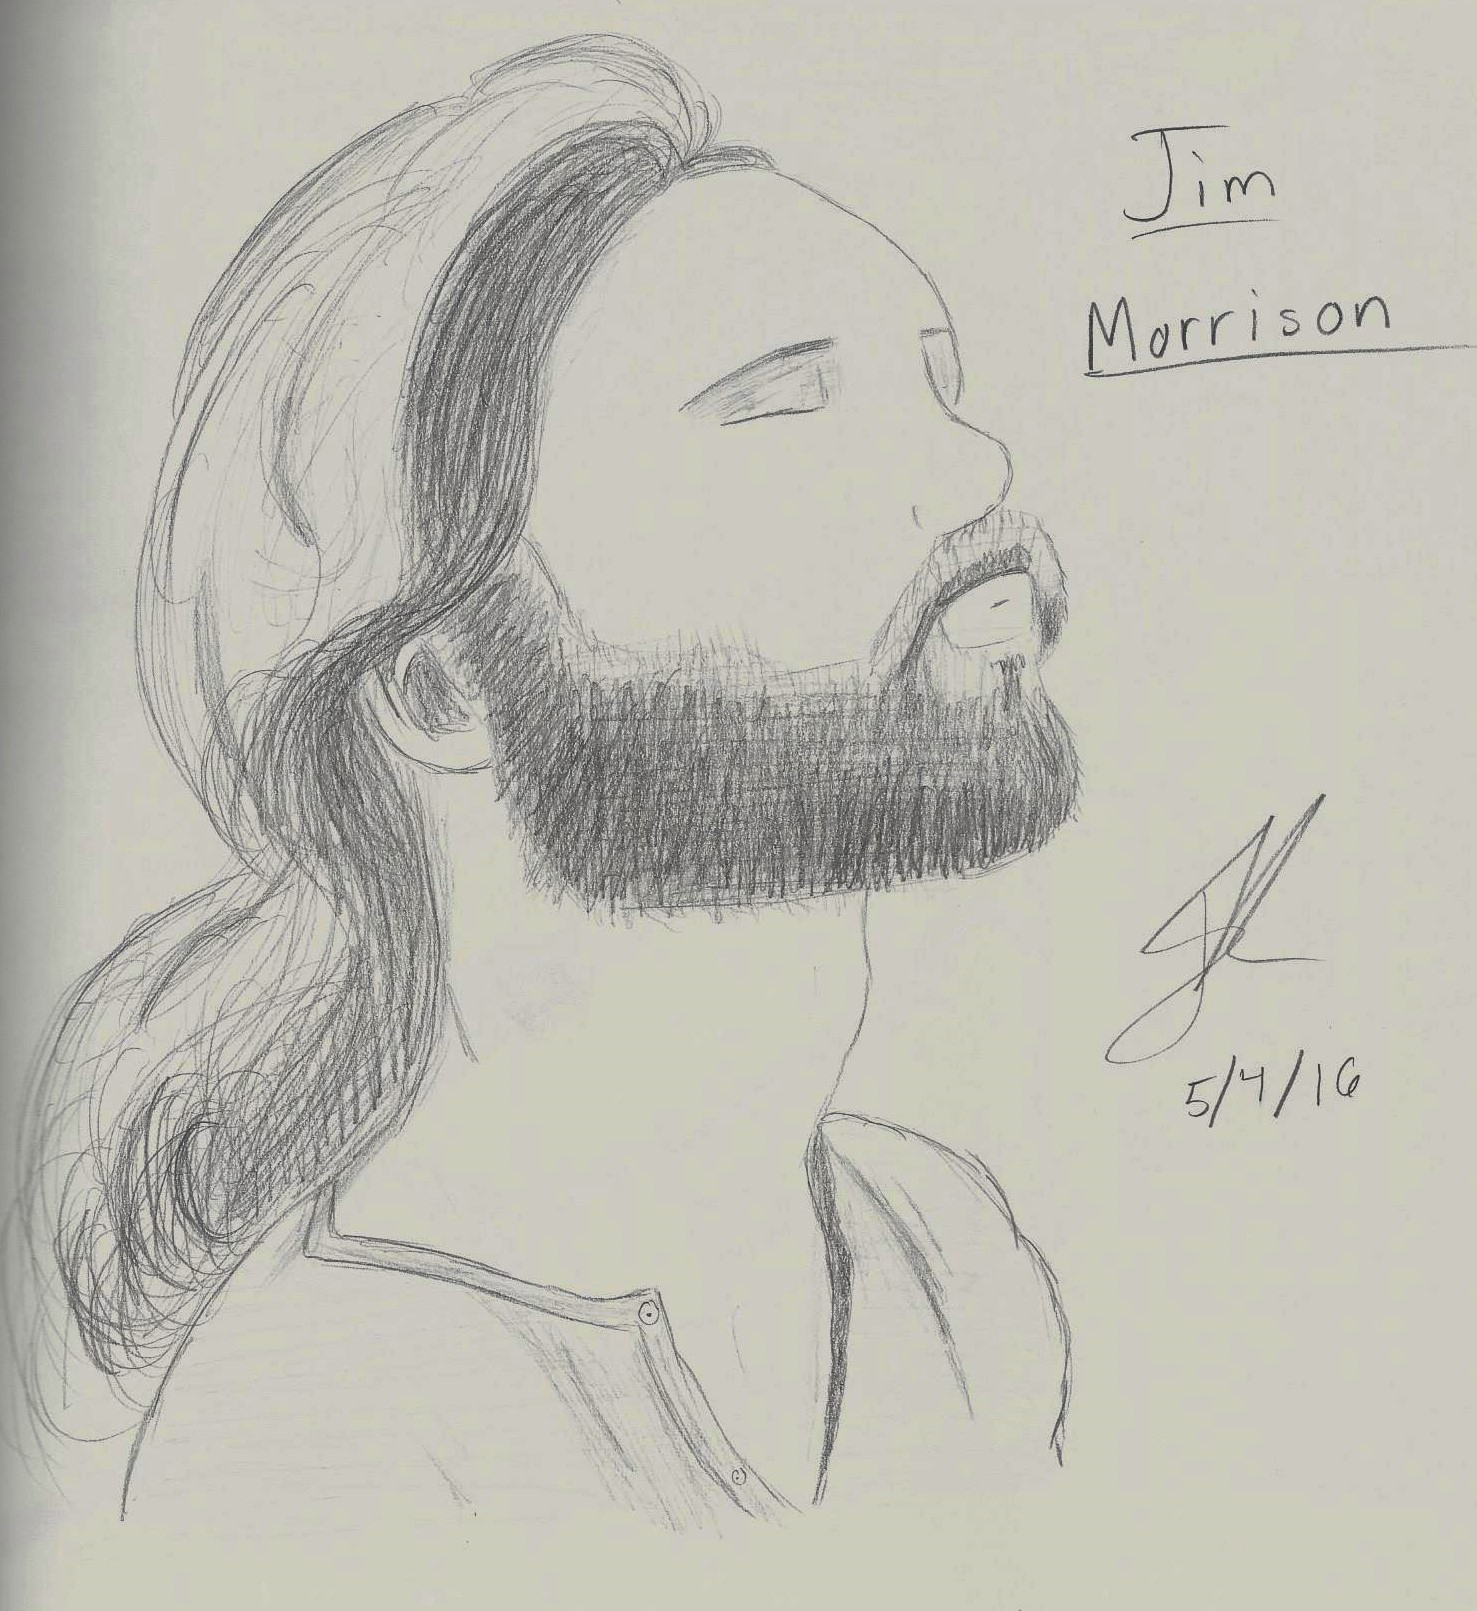 Jim
Morrison
5/4/16